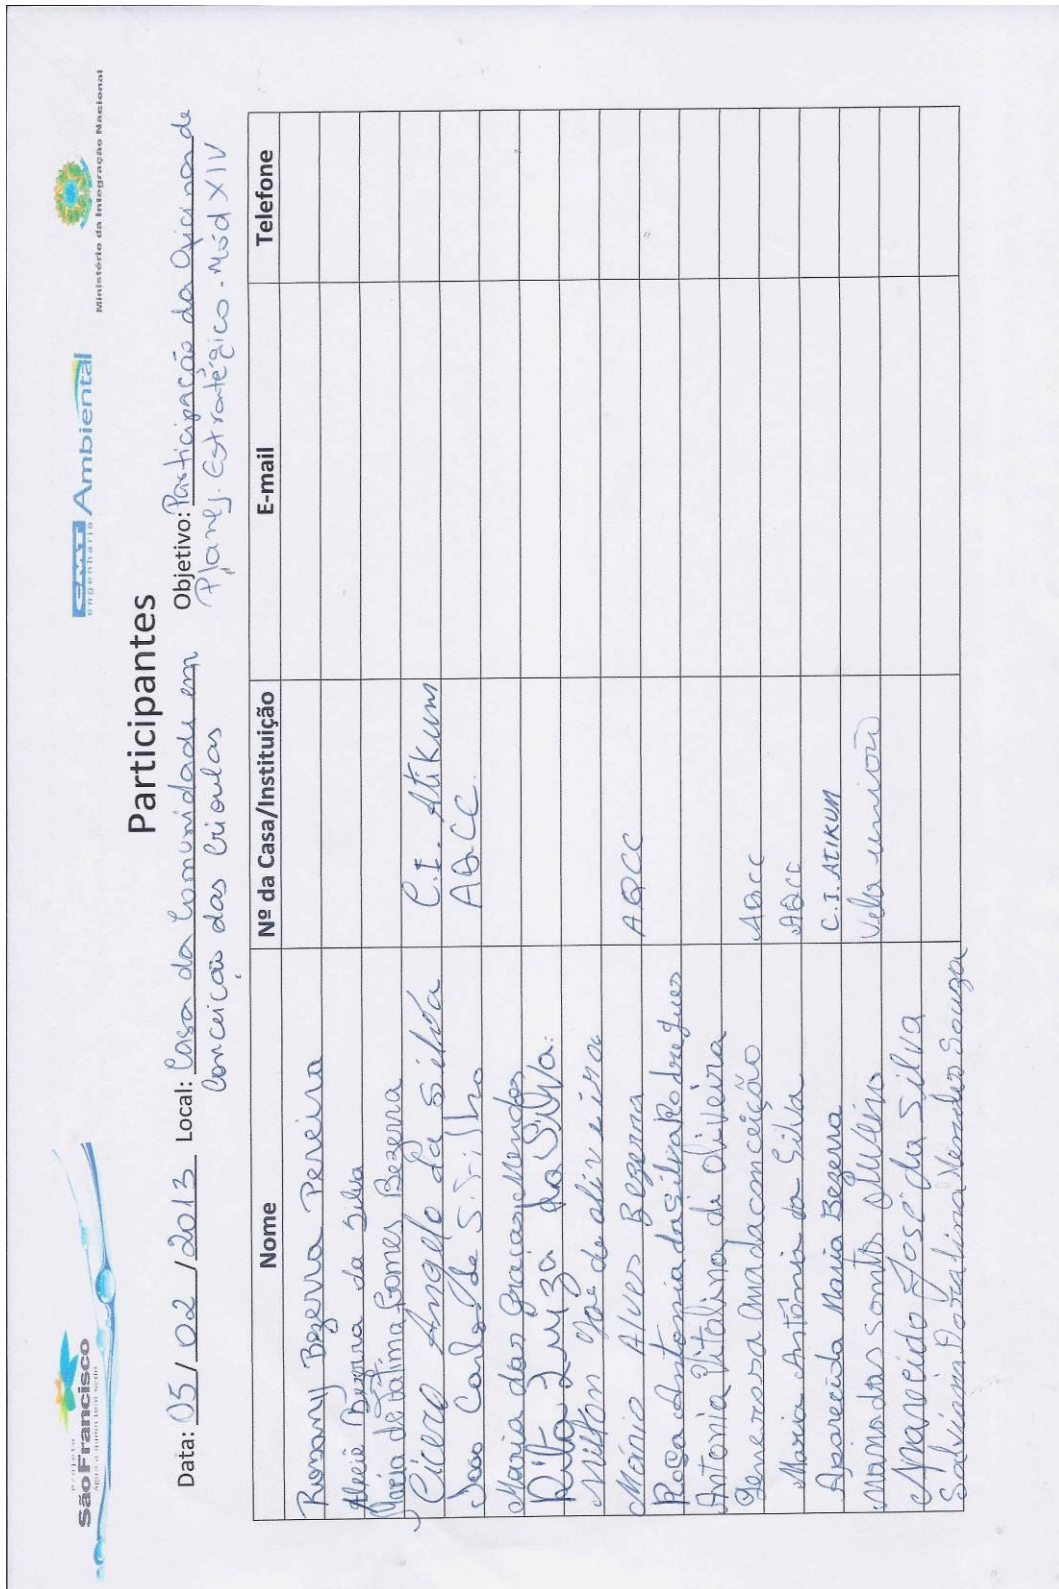 Projeto
São Francisco
água a quem tem sede
CMT Ambiental
engenharia
Ministério da Integração Nacional
Participantes
Data: 05/02/2013 Local: Casa da Comunidade em Objetivo: Participação da Oficina de
Conceição das Crioulas Planej. Estratégico - Mód XIV
Nome Nº da Casa/Instituição E-mail Telefone
Rosany Bezerra Pereira
Bezerra da Silva
Maria Gomes Bezerra
Cicero Angelo da Silva C.I. Atikum
João Carlos de S. Silva AQCC.
Maria das Graças Mendes
Rita Luiza da Silva.
Milton José de oliveira
Mário Alves Bezerra AQCC
Rosa Antonia da Silva Rodrigues
Antonia Vitalina de oliveira
Generosa Ana da conceição AQCC
Maria Antônia da Silva AQCC
Aparecida Maria Bezerra C.I. ATIKUM
dos Santos
Aparecido José da Silva
Mendes Souza